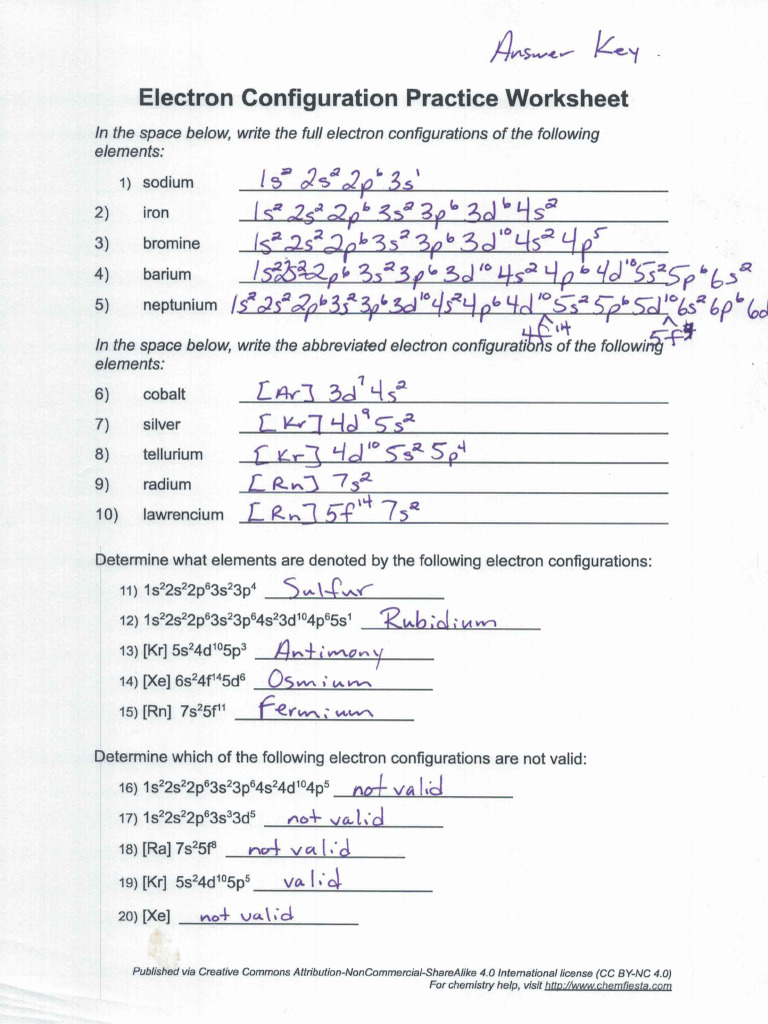 Answer Key .
Electron Configuration Practice Worksheet
In the space below, write the full electron configurations of the following
elements:
1) sodium 1s² 2s² 2p⁶ 3s¹
2) iron 1s² 2s² 2p⁶ 3s² 3p⁶ 3d⁶ 4s²
3) bromine 1s² 2s² 2p⁶ 3s² 3p⁶ 3d¹⁰ 4s² 4p⁵
4) barium 1s² 2s² 2p⁶ 3s² 3p⁶ 3d¹⁰ 4s² 4p⁶ 4d¹⁰ 5s² 5p⁶ 6s²
5) neptunium 1s² 2s² 2p⁶ 3s² 3p⁶ 3d¹⁰ 4s² 4p⁶ 4d¹⁰ 5s² 5p⁶ 5d¹⁰ 6s² 6p⁶ 6d
4f¹⁴ 5f
In the space below, write the abbreviated electron configurations of the following
elements:
6) cobalt [Ar] 3d⁷ 4s²
7) silver [Kr] 4d⁹ 5s²
8) tellurium [Kr] 4d¹⁰ 5s² 5p⁴
9) radium [Rn] 7s²
10) lawrencium [Rn] 5f¹⁴ 7s²
Determine what elements are denoted by the following electron configurations:
11) 1s²2s²2p⁶3s²3p⁴ Sulfur
12) 1s²2s²2p⁶3s²3p⁶4s²3d¹⁰4p⁶5s¹ Rubidium
13) [Kr] 5s²4d¹⁰5p³ Antimony
14) [Xe] 6s²4f¹⁴5d⁶ Osmium
15) [Rn] 7s²5f¹¹ Fermium
Determine which of the following electron configurations are not valid:
16) 1s²2s²2p⁶3s²3p⁶4s²4d¹⁰4p⁵ not valid
17) 1s²2s²2p⁶3s³3d⁵ not valid
18) [Ra] 7s²5f⁸ not valid
19) [Kr] 5s²4d¹⁰5p⁵ valid
20) [Xe] not valid
Published via Creative Commons Attribution-NonCommercial-ShareAlike 4.0 International license (CC BY-NC 4.0)
For chemistry help, visit http://www.chemfiesta.com